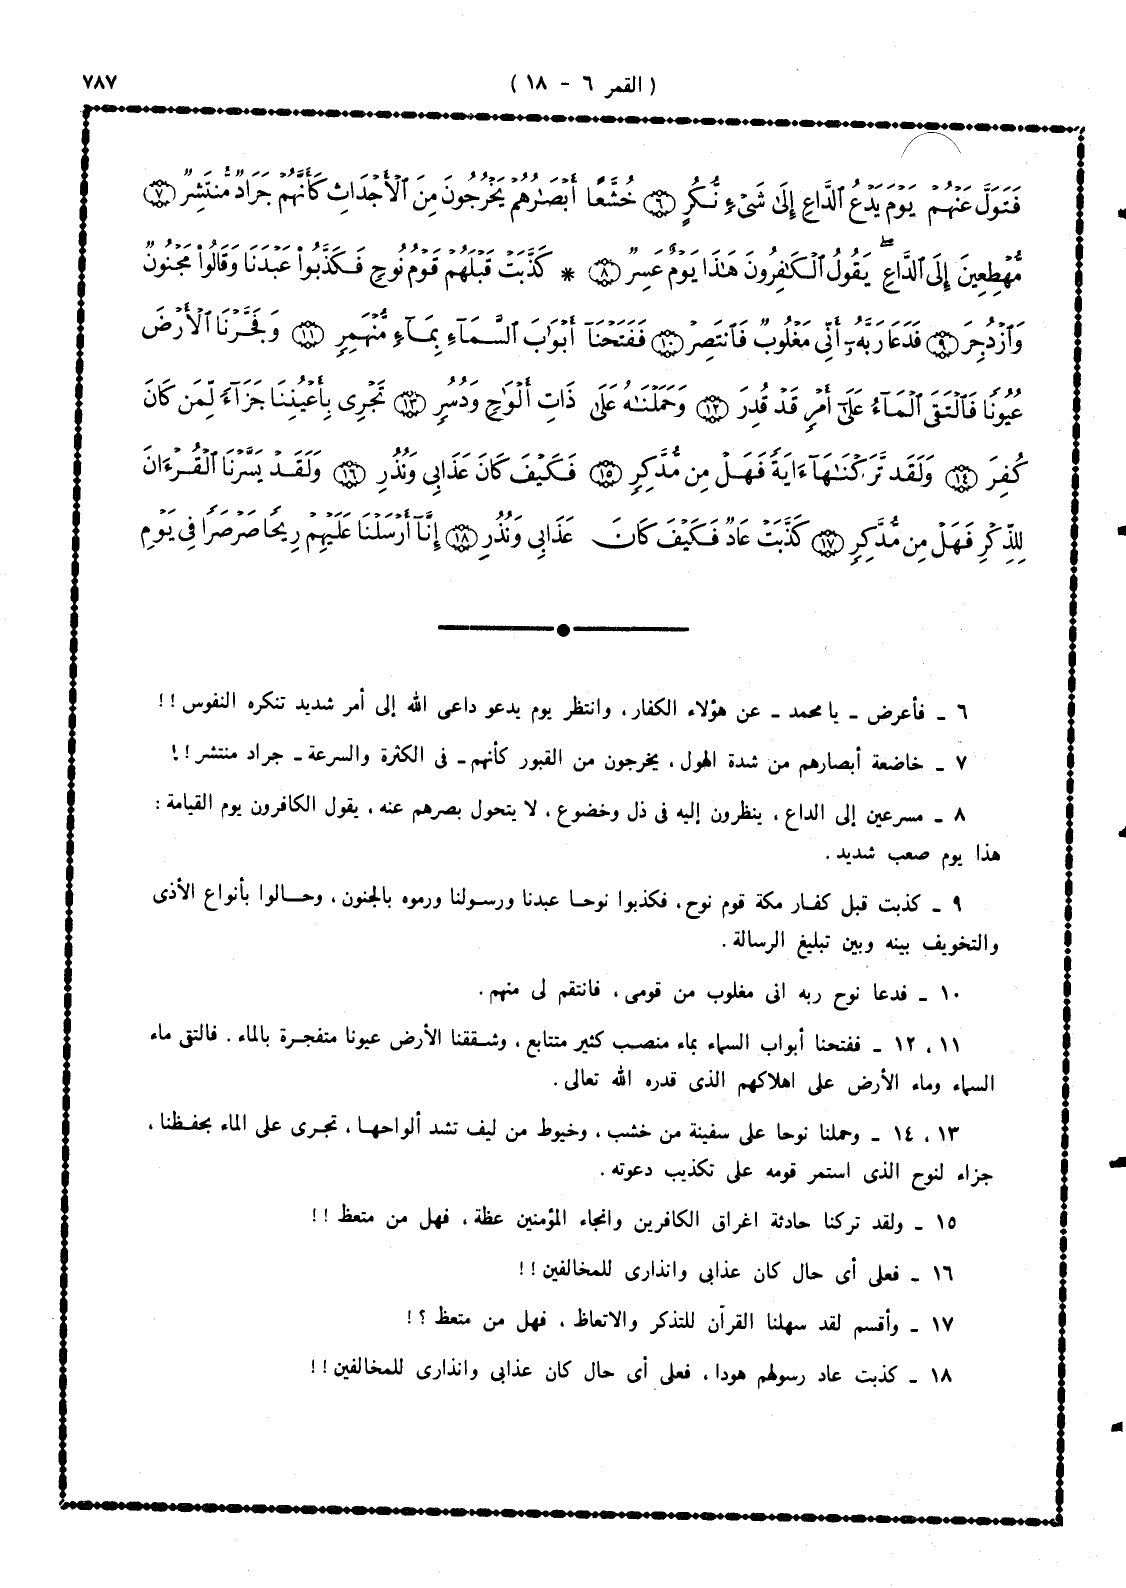 ( القمر ٦ - ١٨ )
٧٨٧
فَتَوَلَّ عَنْهُمْ يَوْمَ يَدْعُ ٱلدَّاعِ إِلَىٰ شَىْءٍ نُّكُرٍ ۝٦ خُشَّعًا أَبْصَٰرُهُمْ يَخْرُجُونَ مِنَ ٱلْأَجْدَاثِ كَأَنَّهُمْ جَرَادٌ مُّنتَشِرٌ ۝٧
مُّهْطِعِينَ إِلَى ٱلدَّاعِ ۖ يَقُولُ ٱلْكَٰفِرُونَ هَٰذَا يَوْمٌ عَسِرٌ ۝٨ * كَذَّبَتْ قَبْلَهُمْ قَوْمُ نُوحٍ فَكَذَّبُوا۟ عَبْدَنَا وَقَالُوا۟ مَجْنُونٌ
وَٱزْدُجِرَ ۝٩ فَدَعَا رَبَّهُۥٓ أَنِّى مَغْلُوبٌ فَٱنتَصِرْ ۝١٠ فَفَتَحْنَآ أَبْوَٰبَ ٱلسَّمَآءِ بِمَآءٍ مُّنْهَمِرٍ ۝١١ وَفَجَّرْنَا ٱلْأَرْضَ
عُيُونًا فَٱلْتَقَى ٱلْمَآءُ عَلَىٰٓ أَمْرٍ قَدْ قُدِرَ ۝١٢ وَحَمَلْنَٰهُ عَلَىٰ ذَاتِ أَلْوَٰحٍ وَدُسُرٍ ۝١٣ تَجْرِى بِأَعْيُنِنَا جَزَآءً لِّمَن كَانَ
كُفِرَ ۝١٤ وَلَقَد تَّرَكْنَٰهَآ ءَايَةً فَهَلْ مِن مُّدَّكِرٍ ۝١٥ فَكَيْفَ كَانَ عَذَابِى وَنُذُرِ ۝١٦ وَلَقَدْ يَسَّرْنَا ٱلْقُرْءَانَ
لِلذِّكْرِ فَهَلْ مِن مُّدَّكِرٍ ۝١٧ كَذَّبَتْ عَادٌ فَكَيْفَ كَانَ عَذَابِى وَنُذُرِ ۝١٨ إِنَّآ أَرْسَلْنَا عَلَيْهِمْ رِيحًا صَرْصَرًا فِى يَوْمِ
٦ ـ فأعرض ـ يا محمد ـ عن هؤلاء الكفار ، وانتظر يوم يدعو داعى الله إلى أمر شديد تنكره النفوس !!
٧ ـ خاضعة أبصارهم من شدة الهول ، يخرجون من القبور كأنهم ـ فى الكثرة والسرعة ـ جراد منتشر !!
٨ ـ مسرعين إلى الداع ، ينظرون إليه فى ذل وخضوع ، لا يتحول بصرهم عنه ، يقول الكافرون يوم القيامة :
هذا يوم صعب شديد .
٩ ـ كذبت قبل كفار مكة قوم نوح ، فكذبوا نوحا عبدنا ورسولنا ورموه بالجنون ، وحالوا بأنواع الأذى
والتخويف بينه وبين تبليغ الرسالة .
١٠ ـ فدعا نوح ربه انى مغلوب من قومى ، فانتقم لى منهم .
١١ ، ١٢ ـ ففتحنا أبواب السماء بماء منصب كثير متتابع ، وشققنا الأرض عيونا متفجرة بالماء . فالتقى ماء
السماء وماء الأرض على اهلاكهم الذى قدره الله تعالى .
١٣ ، ١٤ ـ وحملنا نوحا على سفينة من خشب ، وخيوط من ليف تشد ألواحها ، تجرى على الماء بحفظنا ،
جزاء لنوح الذى استمر قومه على تكذيب دعوته .
١٥ ـ ولقد تركنا حادثة اغراق الكافرين وانجاء المؤمنين عظة ، فهل من متعظ !!
١٦ ـ فعلى أى حال كان عذابى وانذارى للمخالفين !!
١٧ ـ وأقسم لقد سهلنا القرآن للتذكر والاتعاظ ، فهل من متعظ ؟!
١٨ ـ كذبت عاد رسولهم هودا ، فعلى أى حال كان عذابى وانذارى للمخالفين !!